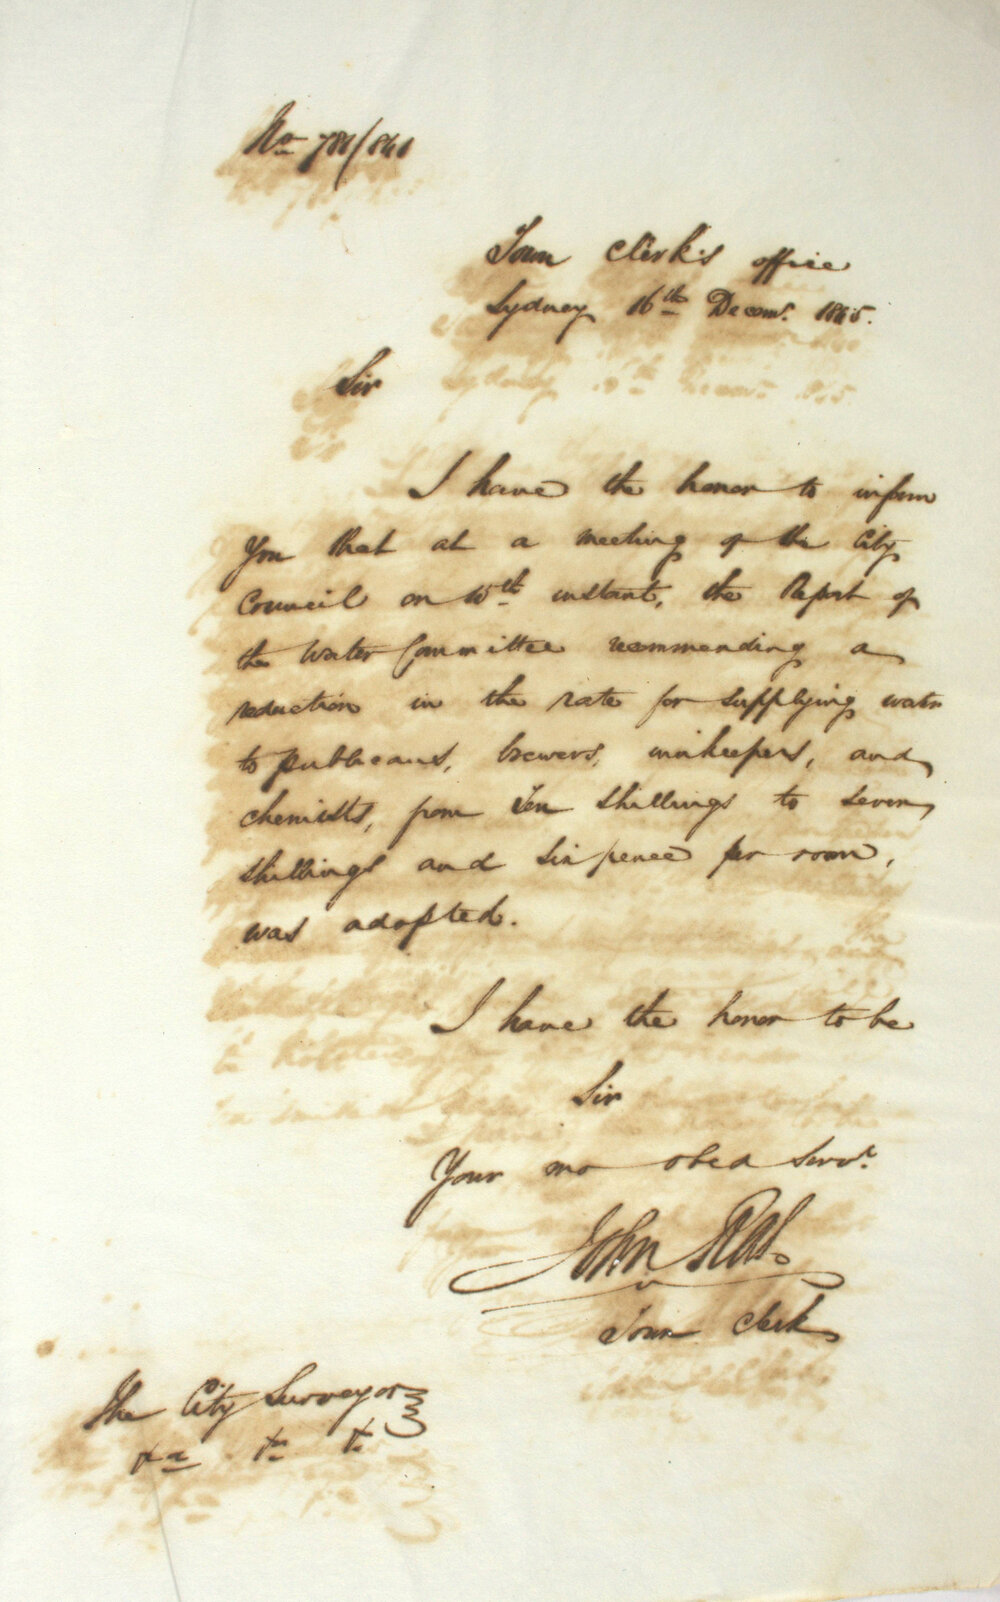 No 781/861
Town Clerk's office
Sydney 16th Decemr. 1865.
Sir
I have the honor to inform
You that at a meeting of the City
Council on 10th instant, the Report of
the Water Committee recommending a
reduction in the rate for supplying water
to publicans, brewers, innkeepers, and
chemists, from Ten Shillings to Seven
shillings and sixpence per room,
was adopted.
I have the honor to be
Sir
Your mo obed Servt.
John
Town Clerk
The City Surveyor